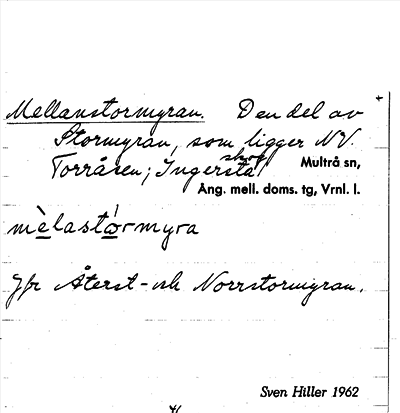 Mellanstormyran. Den del av
Stormyran, som ligger NV.
Torråsen; Ingersta skog Multrå sn,
Ång. mell. doms. tg, Vrnl. l.
mèlastórmyra
Jfr Återst- och Norrstormyran.
Sven Hiller 1962